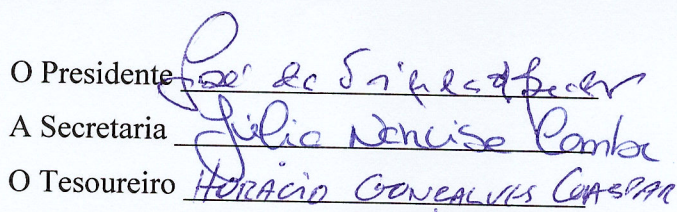 O Presidente José da
A Secretaria Júlia Narciso Comba
O Tesoureiro HORÁCIO GONÇALVES GASPAR